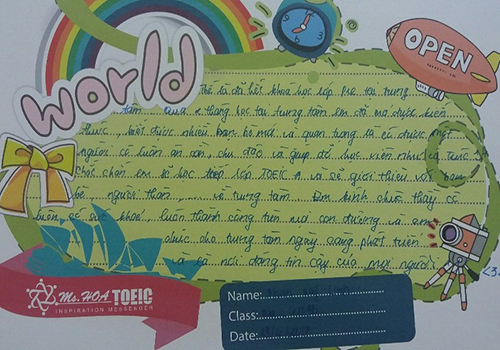 world
OPEN
Thế là đã hết khóa học lớp Pre tại trung
tâm Qua x tháng học tại trung tâm em đã mở được kiến
thức, biết được nhiều bạn bè mới và quan trọng là có được
người cô luôn ân cần, chu đáo và giúp đỡ học viên như
Chắc chắn em sẽ học tiếp lớp TOEIC A và sẽ giới thiệu với bạn
bè người thân, về trung tâm. Em kính chúc thầy cô
luôn có sức khoẻ, luôn thành công trên mọi con đường và em
chúc cho trung tâm ngày càng phát triển
và là nơi đáng tin cậy của mọi người! <3
Ms. HOA TOEIC
INSPIRATION MESSENGER
Name:
Class:
Date: